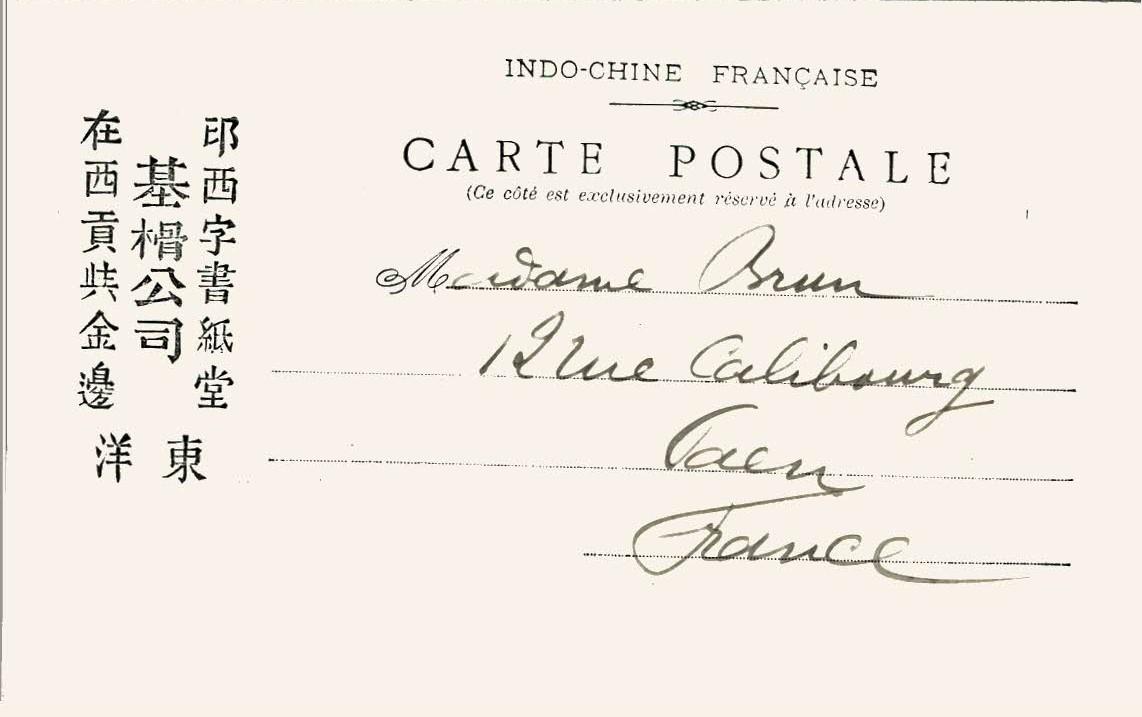 INDO-CHINE FRANÇAISE
CARTE POSTALE
(Ce côté est exclusivement réservé à l'adresse)
Madame Brun
12 rue Calibourg
Caen
France
印西字書紙堂
基榾公司
在西貢共金邊
東洋